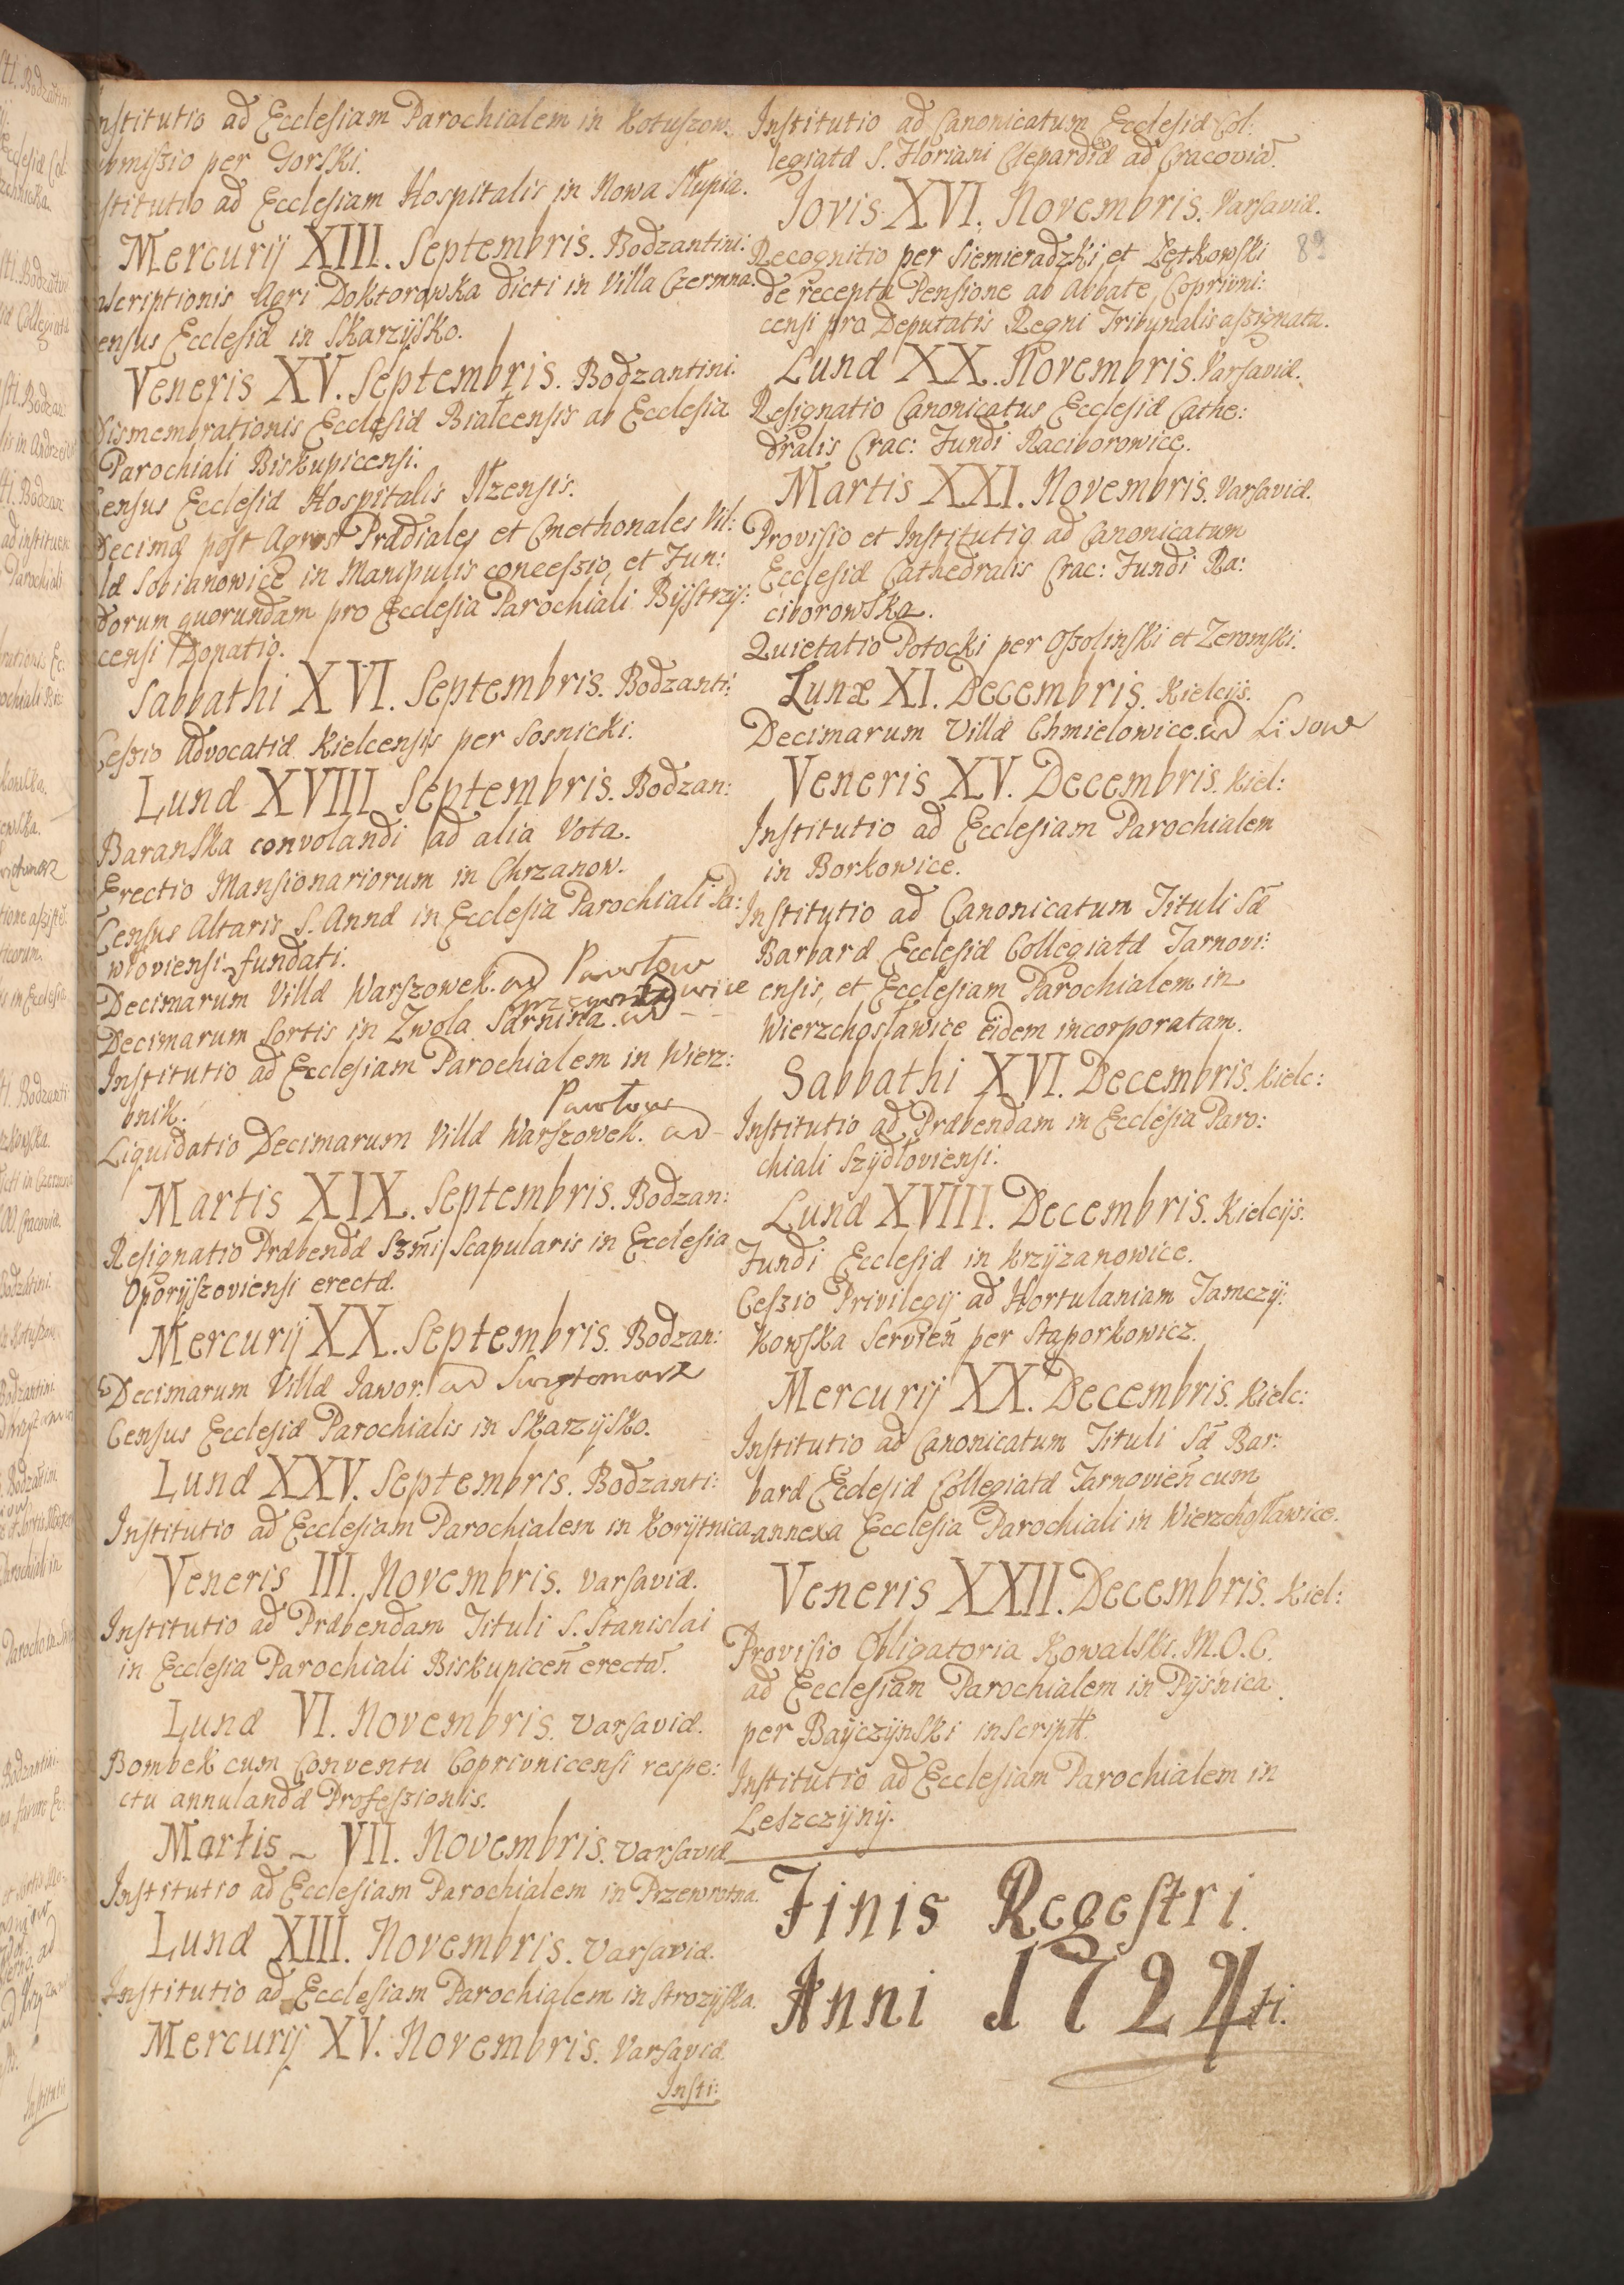 Institutio ad Ecclesiam Parochialem in Kotuszow.
ubmiszio per Gorski.
nstitutio ad Ecclesiam Hospitalis in Nowa Słupia.
Mercurij XIII. Septembris. Bodzantini:
Inscriptionis Agri Doktorowka dicti in Villa Czermna.
Census Ecclesiæ in Skarzysko.
Veneris XV. Septembris. Bodzantini.
Dismembrationis Ecclesiæ Bialcensis ab Ecclesia
Parochiali Biskupicensi.
Census Ecclesiæ Hospitalis Iłzensis.
Decimæ post Agros Prædiales et Cmethonales Vil:
læ Sobianowice in Manipulis concessio, et Fun:
dorum quorundam pro Ecclesia Parochiali Bystrzy:
censi Donatio.
Sabbathi XVI. Septembris. Bodzanti:
Cessio Advocatiæ Kielcensis per Sosnicki.
Lunæ XVIII Septembris. Bodzan:
Baranska convolandi ad alia Vota.
Erectio Mansionariorum in Chrzanow.
Census Altaris S. Annæ in Ecclesia Parochiali Pa:
wloviensi fundati.
Decimarum Villæ Warszowek. ad Pawłow
Decimarum Sortis in Zwola Sarnina. ad
Institutio ad Ecclesiam Parochialem in Wierz:
bnik.
Liquidatio Decimarum Villæ Warszowek. ad Pawłow
Martis XIX. Septembris. Bodzan:
Resignatio Præbendæ Szmi Scapularis in Ecclesia
Oporyszoviensi erectæ.
Mercurij XX. Septembris. Bodzan:
Decimarum Villæ Jawor. ad Swiętomarz
Census Ecclesiæ Parochialis in Skarzysko.
Lunæ XXV. Septembris. Bodzanti:
Institutio ad Ecclesiam Parochialem in Korytnica
Veneris III. Novembris. Varsaviæ.
Institutio ad Præbendam Tituli S. Stanislai
in Ecclesia Parochiali Biskupiceñ erectã.
Lunæ VI. Novembris. Varsaviæ.
Bombek cum Conventu Coprivnicensi respe:
ctu annulandæ Professionis.
Martis ~ VII. Novembris. Varsaviæ
Institutio ad Ecclesiam Parochialem in Przewrotna.
Lunæ XIII. Novembris. Varsaviæ.
Institutio ad Ecclesiam Parochialem in Strozyska.
Mercurij XV. Novembris. Varsaviæ.
Insti:
Institutio ad Canonicatum Ecclesiæ Col:
legiatæ S. Floriani Clepardiæ ad Cracoviã.
Jovis XVI. Novembris. Varsaviæ.
Recognitio per Siemieradzki et Lętkowski
de recepta Pensione ab Abbate Coprivni:
censi pro Deputatis Regni Tribunalis assignata.
Lunæ XX. Novembris. Varsaviæ.
Resignatio Canonicatus Ecclesiæ Cathe:
dralis Crac: Fundi Raciborowice.
Martis XXI. Novembris. Varsaviæ.
Provisio et Institutio ad Canonicatum
Ecclesiæ Cathedralis Crac: Fundi Ra:
ciborowska.
Quietatio Potocki per Ossolinski et Zeromski.
Lunæ XI. Decembris. Kielcijs.
Decimarum Villæ Chmielowice. ad Lisow
Veneris XV. Decembris. Kiel:
Institutio ad Ecclesiam Parochialem
in Borkowice.
Institutio ad Canonicatum Tituli Sæ
Barbaræ Ecclesiæ Collegiatæ Tarnovi:
ensis, et Ecclesiam Parochialem in
Wierzchosławice eidem incorporatam.
Sabbathi XVI. Decembris. Kielc:
Institutio ad Præbendam in Ecclesia Paro:
chiali Szydłoviensi.
Lunæ XVIII. Decembris. Kielcijs.
Fundi Ecclesiæ in Krzyzanowice.
Cessio Privilegij ad Hortulaniam Tamczy:
kowska Servieñ per Staporkowicz.
Mercurij XX. Decembris. Kielc:
Institutio ad Canonicatum Tituli Sæ Bar:
baræ Ecclesiæ Collegiatæ Tarnovieñ cum
annexa Ecclesia Parochiali in Wierzchosławice.
Veneris XXII. Decembris. Kiel:
Provisio Obligatoria Kowalski. M.O.C.
ad Ecclesiam Parochialem in Pysnica
per Bayczynski inscript.
Institutio ad Ecclesiam Parochialem in
Leszczyny.
Finis Regestri.
Anni 1724ti.